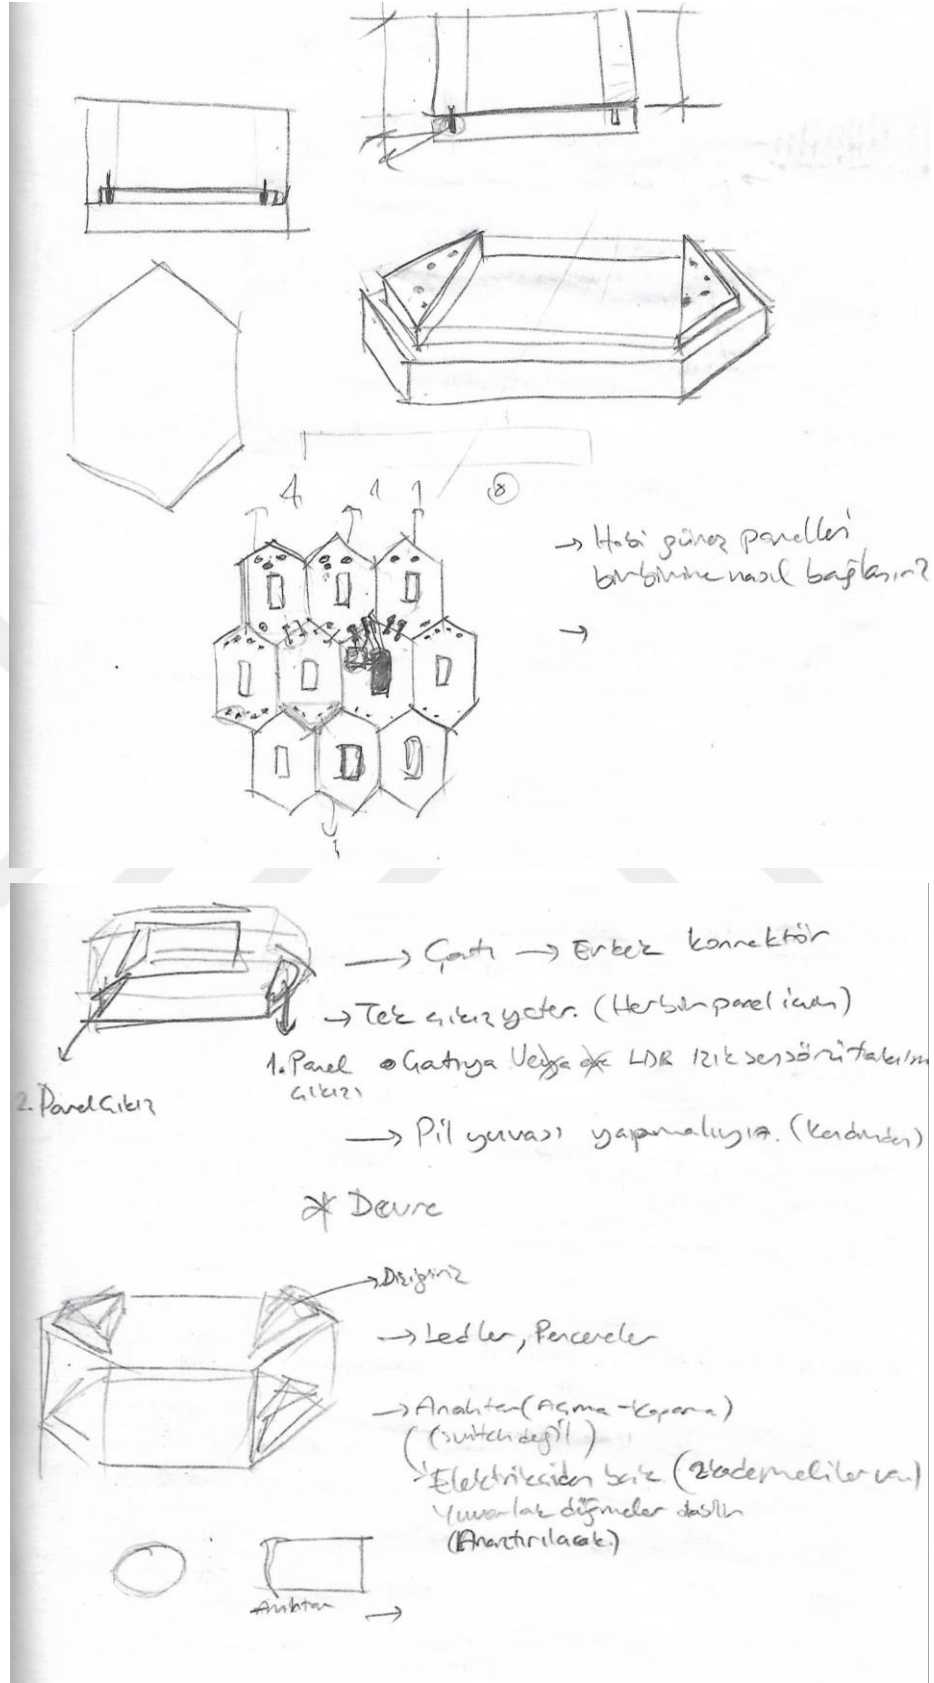 → Hobi güneş panelleri
birbirine nasıl bağlanır?
→
→ Çatı → Erkek konnektör
→ Tek çıkış yeter. (Her bir panel için)
1. Panel
çıkışı
• Çatıya Veya LDR ışık sensörü takılım
2. Panel Çıkış
→ Pil yuvası yapmalıyız. (Kendinden)
* Devre
→ Dizginiz
→ Ledler, Pencereler
→ Anahtar (Açma-Kapama)
(switch değil)
Elektrikciden bak (2 kademeliler var)
Yuvarlak düğmeler
(Araştırılacak.)
Anahtar →